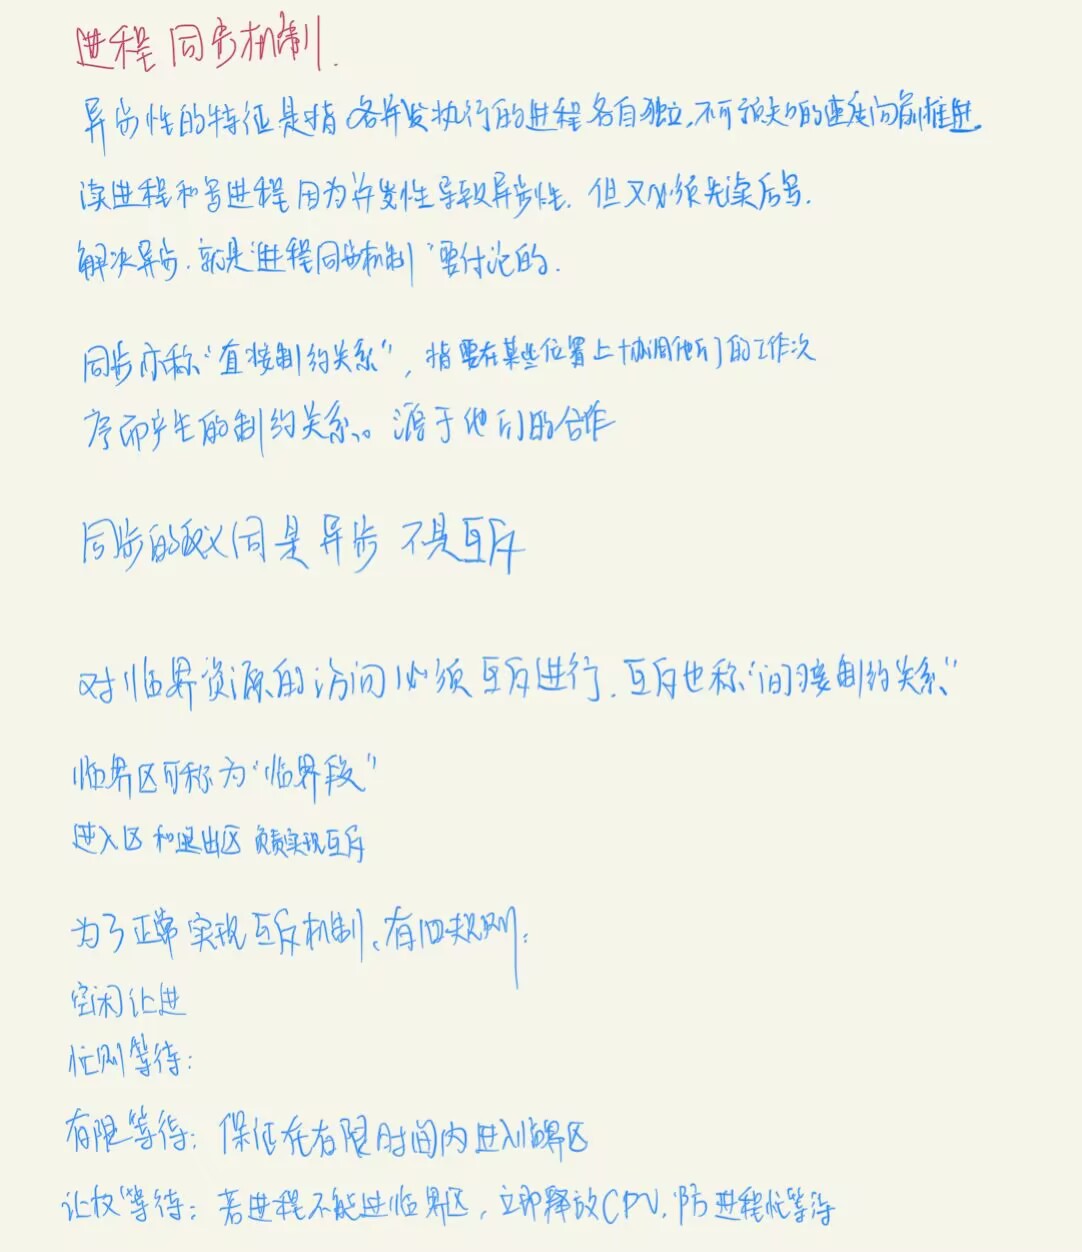 进程同步机制.
异步性的特征是指各并发执行的进程各自独立,不可预知的速度向前推进.
读进程和写进程因为并发性导致异步性.但又必须先读后写.
解决异步.就是"进程同步机制"要讨论的.
同步亦称"直接制约关系",指要在某些位置上协调他们的工作次
序而产生的制约关系。源于他们的合作
同步的反义词是异步 不是互斥
对临界资源的访问必须互斥进行.互斥也称"间接制约关系"
临界区可称为"临界段"
进入区和退出区负责实现互斥
为了正常实现互斥机制、有四大规则:
空闲让进
忙则等待:
有限等待:保证在有限时间内进入临界区
让权等待:若进程不能进临界区,立即释放CPU.防进程忙等待